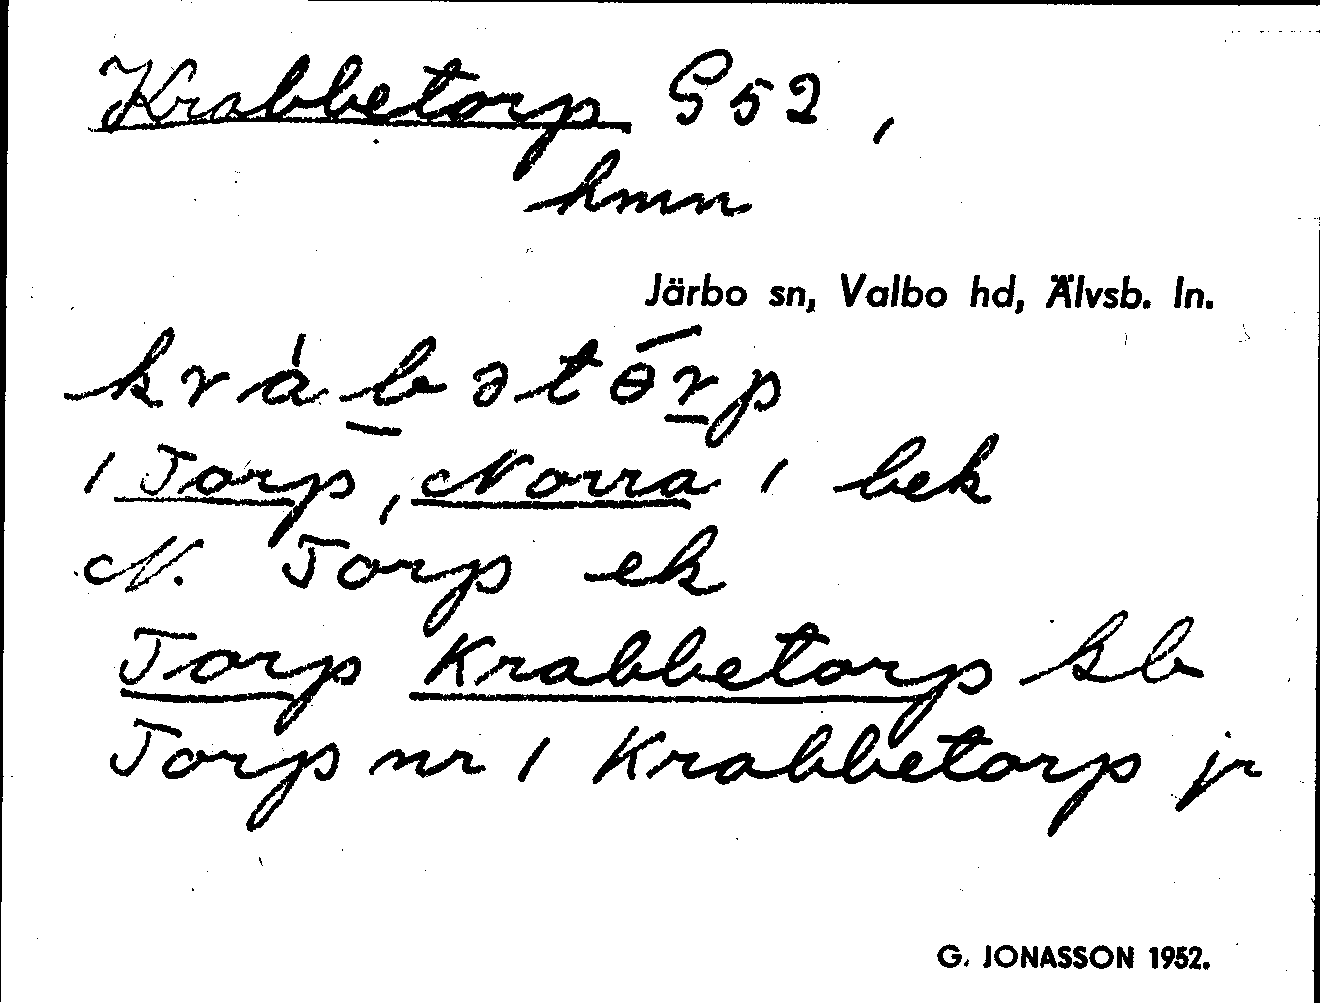 Krabbetorp G52,
hmn
Järbo sn, Valbo hd, Älvsb. ln.
kràbətɵ́rp
1 Torp, Norra 1 bek
N. Torp ek
Torp Krabbetorp kb
Torp nr 1 Krabbetorp jr
G. JONASSON 1952.